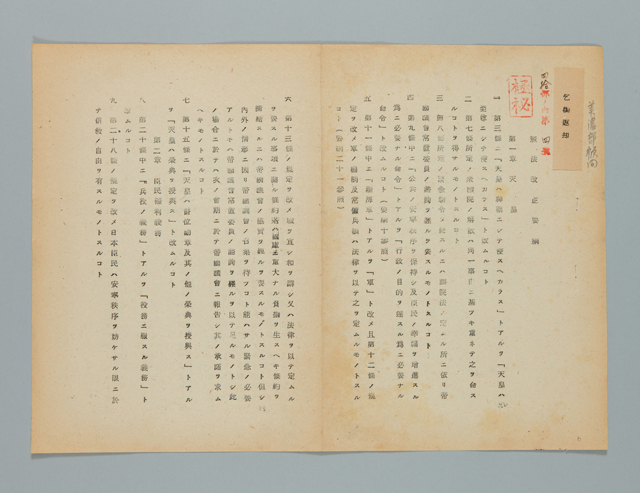 乞御返却
美濃部顧問
極秘
憲法改正要綱
第一章　天皇
一　第三條ニ「天皇ハ神聖ニシテ侵スヘカラス」トアルヲ「天皇ハ至
尊ニシテ侵スヘカラス」ト改ムルコト
二　第七條所定ノ衆議院ノ解散ハ同一事由ニ基ツキ重ネテ之ヲ命ス
ルコトヲ得サルモノトスルコト
三　第八條所定ノ緊急勅令ヲ發スルニハ議院法ノ定ムル所ニ依リ帝
國議會常置委員ノ諮詢ヲ經ルヲ要スルモノトスルコト
四　第九條中ニ「公共ノ安寧秩序ヲ保持シ及臣民ノ幸福ヲ增進スル
爲ニ必要ナル命令」トアルヲ「行政ノ目的ヲ達スル爲ニ必要ナル
命令」ト改ムルコト（要綱十參照）
五　第十一條中ニ「陸海軍」トアルヲ「軍」ト改メ且第十二條ノ規
定ヲ改メ軍ノ編制及常備兵額ハ法律ヲ以テ之ヲ定ムルモノトスル
コト（要綱二十參照）
六　第十三條ノ規定ヲ改メ戰ヲ宣シ和ヲ講シ又ハ法律ヲ以テ定ムル
ヲ要スル事項ニ關ル條約若ハ國ニ重大ナル負擔ヲ生スヘキ條約ヲ
締結スルニハ帝國議會ノ協贊ヲ經ルヲ要スルモノトスルコト但シ
內外ノ情形ニ因リ帝國議會ノ召集ヲ待ツコト能ハサル緊急ノ必要
アルトキハ帝國議會常置委員ノ諮詢ヲ經ルヲ以テ足ルモノトシ此
ノ場合ニ於テハ次ノ會期ニ於テ帝國議會ニ報告シ其ノ承諾ヲ求ム
ヘキモノトスルコト
七　第十五條ニ「天皇ハ爵位勳章及其ノ他ノ榮典ヲ授與ス」トアル
ヲ「天皇ハ榮典ヲ授與ス」ト改ムルコト
第二章　臣民權利義務
八　第二十條中ニ「兵役ノ義務」トアルヲ「役務ニ服スル義務」ト
改ムルコト
九　第二十八條ノ規定ヲ改メ日本臣民ハ安寧秩序ヲ妨ケサル限ニ於
テ信敎ノ自由ヲ有スルモノトスルコト